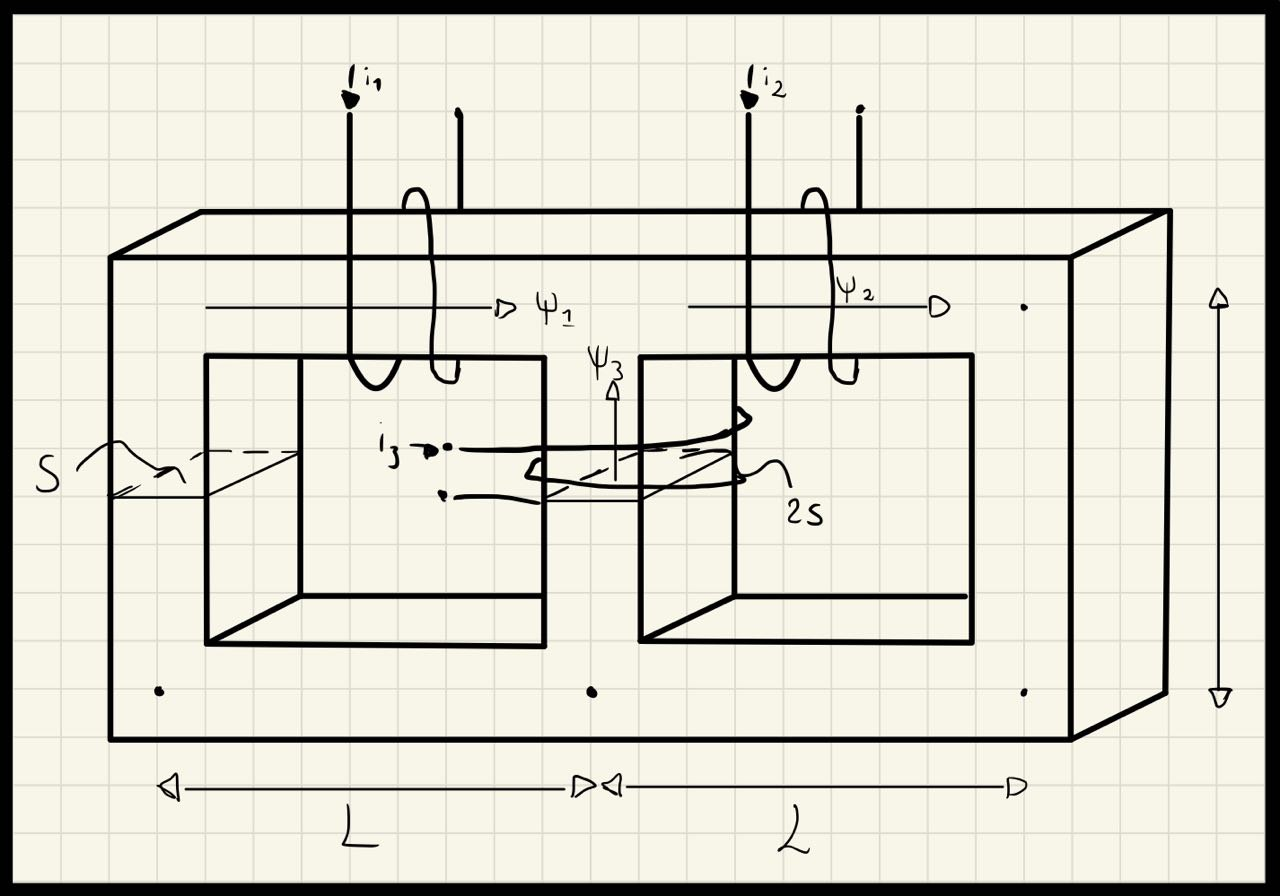 i₁
i₂
ψ₁
ψ₂
ψ₃
i₃
S
2S
L
L